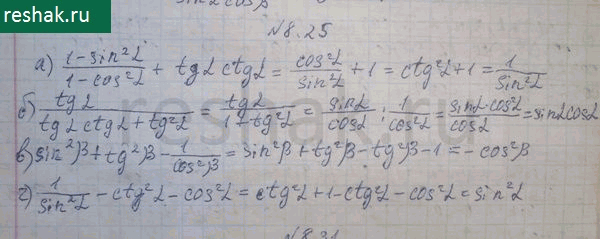 reshak.ru
sin2cosβ
№8.25
а) (1-sin²α)/(1-cos²α) + tgα ctgα = cos²α/sin²α + 1 = ctg²α+1 = 1/sin²α
б) tgα/(tgα ctgα + tg²α) = tgα/(1+tg²α) = sinα/cosα : 1/cos²α = sinα·cos²α/cosα = sinα cosα
в) sin²β + tg²β - 1/cos²β = sin²β + tg²β - tg²β - 1 = -cos²β
г) 1/sin²α - ctg²α - cos²α = ctg²α + 1 - ctg²α - cos²α = sin²α
№8.31